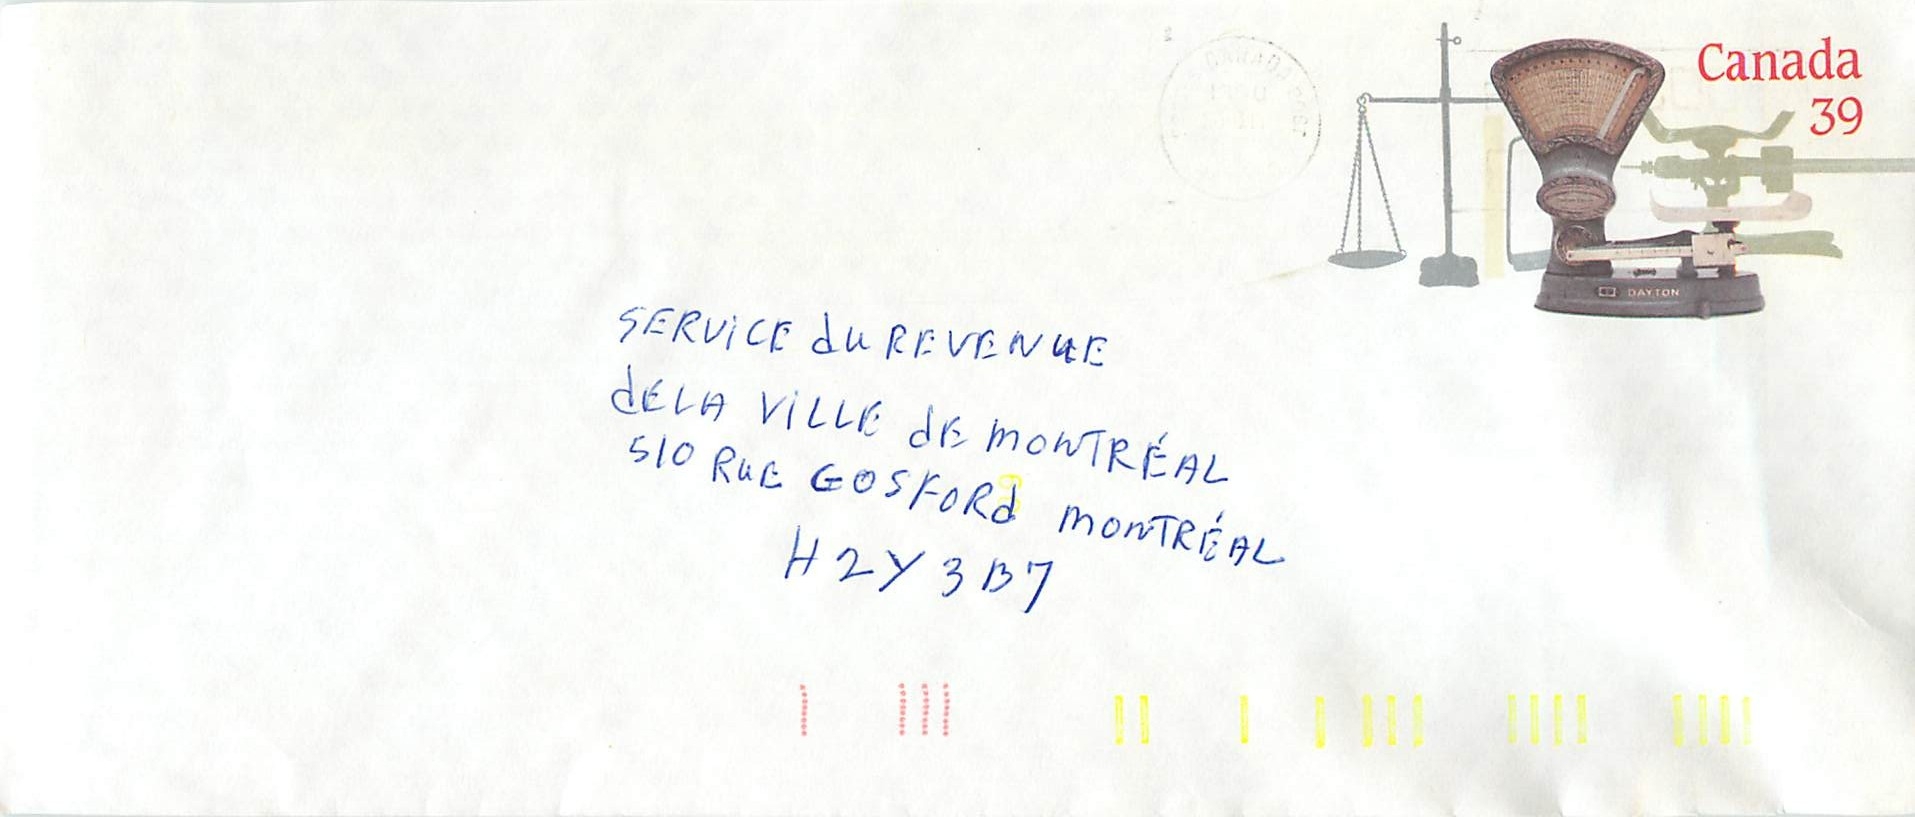 Canada
39
CANADA
DAYTON
SERVICE du REVENUE
dELA VILLE dE MONTRÉAL
510 RUE GOSFORd MONTRÉAL
H2Y 3B7